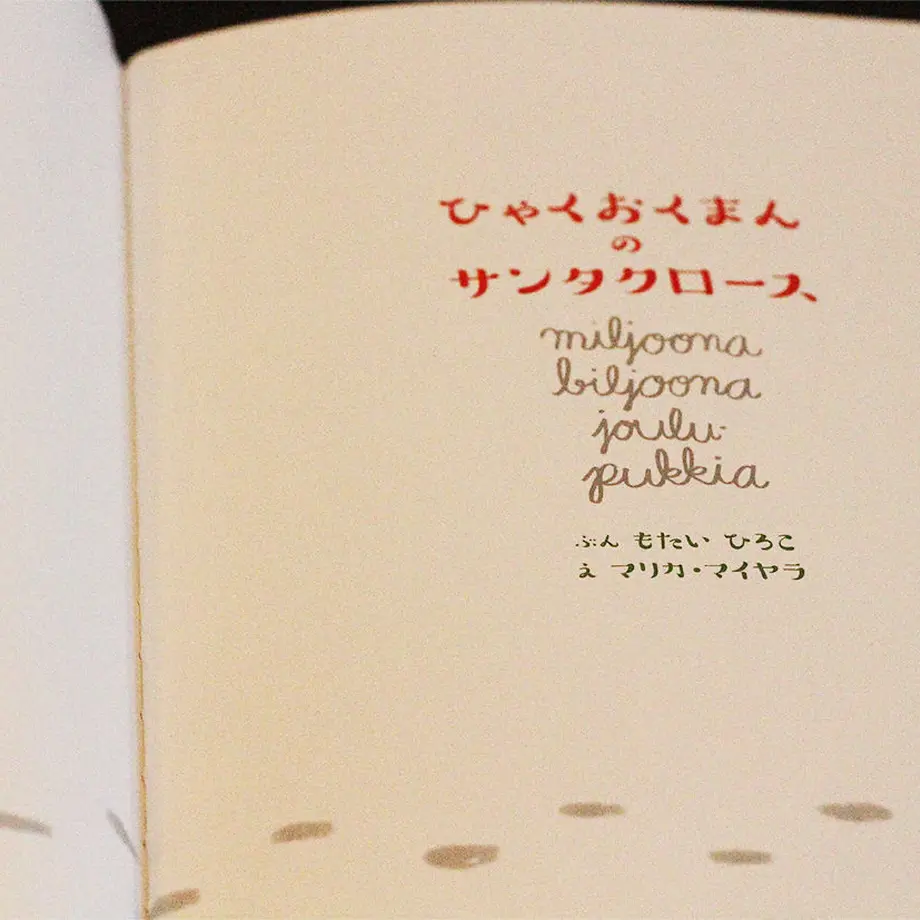 ひゃくおくまん
の
サンタクロース
miljoona
biljoona
joulu-
pukkia
ぶん もたい ひろこ
え マリカ・マイヤラ